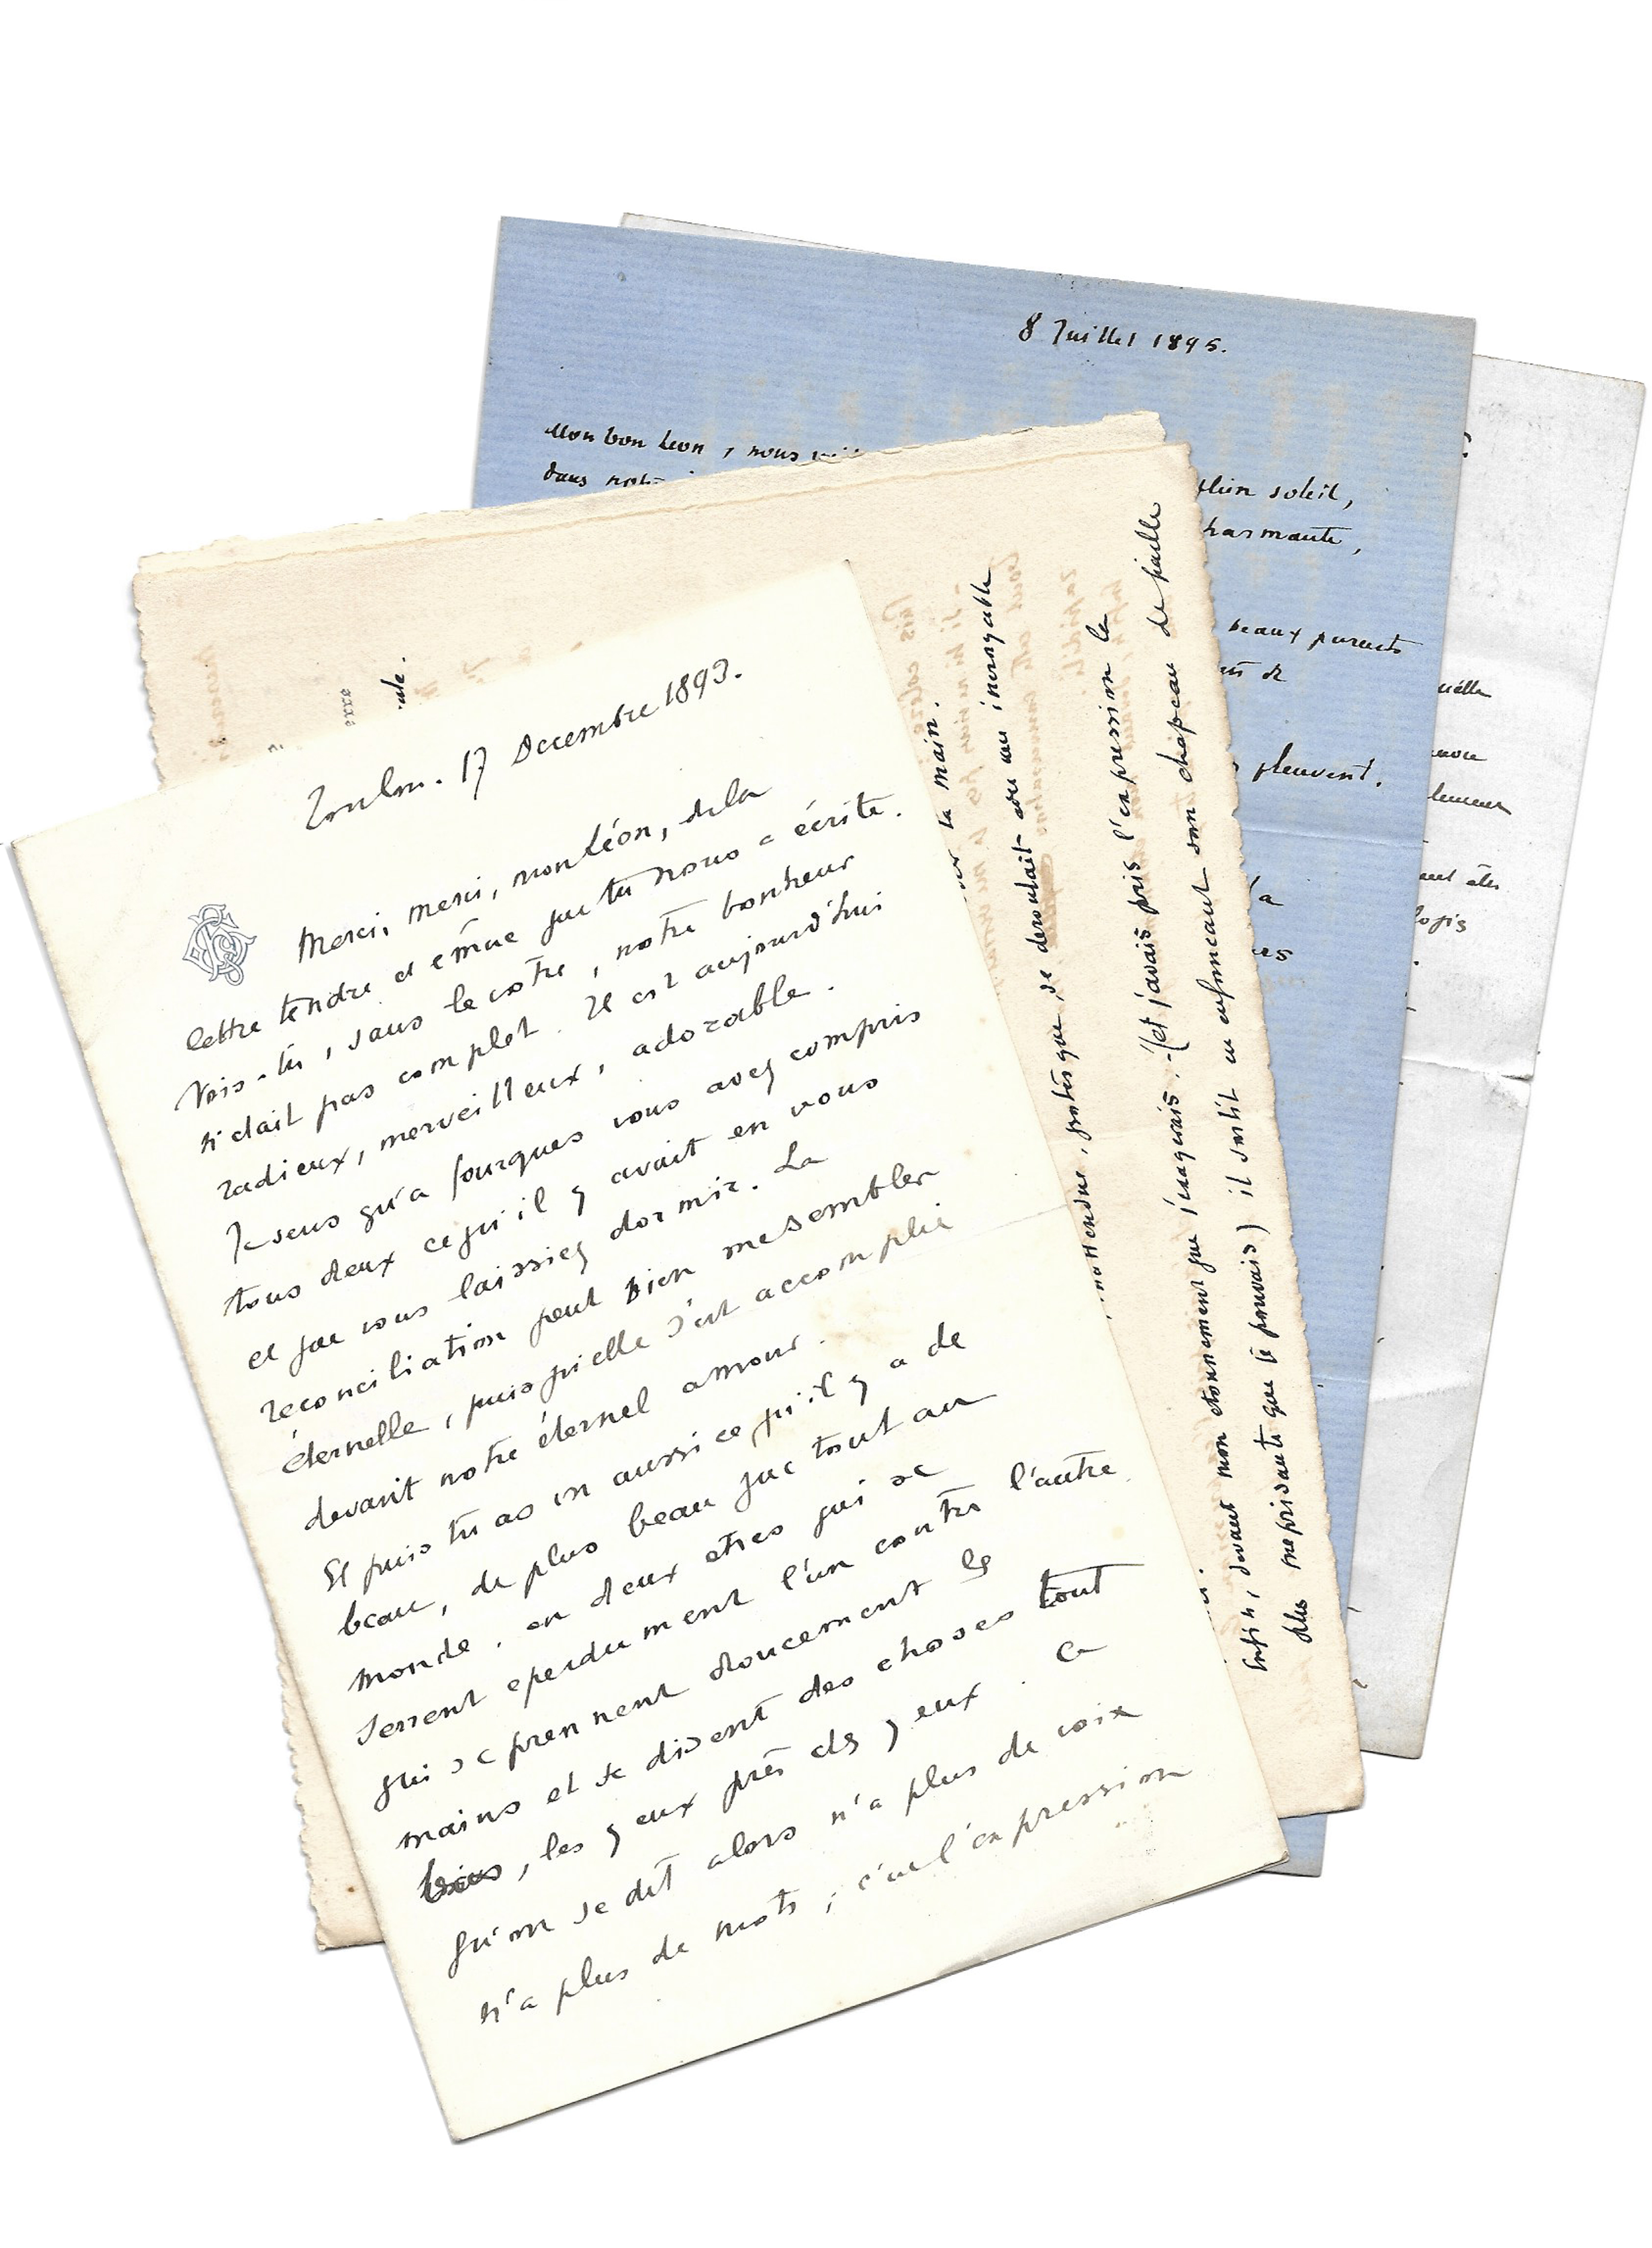 Toulon. 17 Decembre 1893.
Merci, merci, mon Léon, de la
lettre tendre et emue que tu nous a écrite.
Vois-tu, sans le votre, notre bonheur
n'etait pas complet. Il est aujourd'hui
radieux, merveilleux, adorable.
Je sens qu'a fourques vous avez compris
tous deux ce qu'il y avait en vous
et que vous laissiez dormir. La
reconciliation peut bien me sembler
éternelle, puis qu'elle s'est accomplie
devant notre éternel amour.
Et puis tu as vu aussi ce qu'il y a de
beau, de plus beau que tout au
monde. en deux etres qui se
serrent eperdument l'un contre l'autre
qui se prennent doucement les
mains et se disent des choses tout
bas, les yeux près des yeux. Ce
qu'on se dit alors n'a plus de voix
n'a plus de mots; c'est l'expression
8 Juillet 1895.
Mon bon Leon, nous
dans notre
plein soleil,
charmante,
beaux parents
de
pleuvent.
a
la main.
se deroulait avec une incroyable
inattendue, grotesque,
que j'imaginais. (et j'avais pris l'expression la
Enfin, devant mon etonnement
plus meprisante que je pouvais) il sortit en enfoncant son chapeau de paille
logis